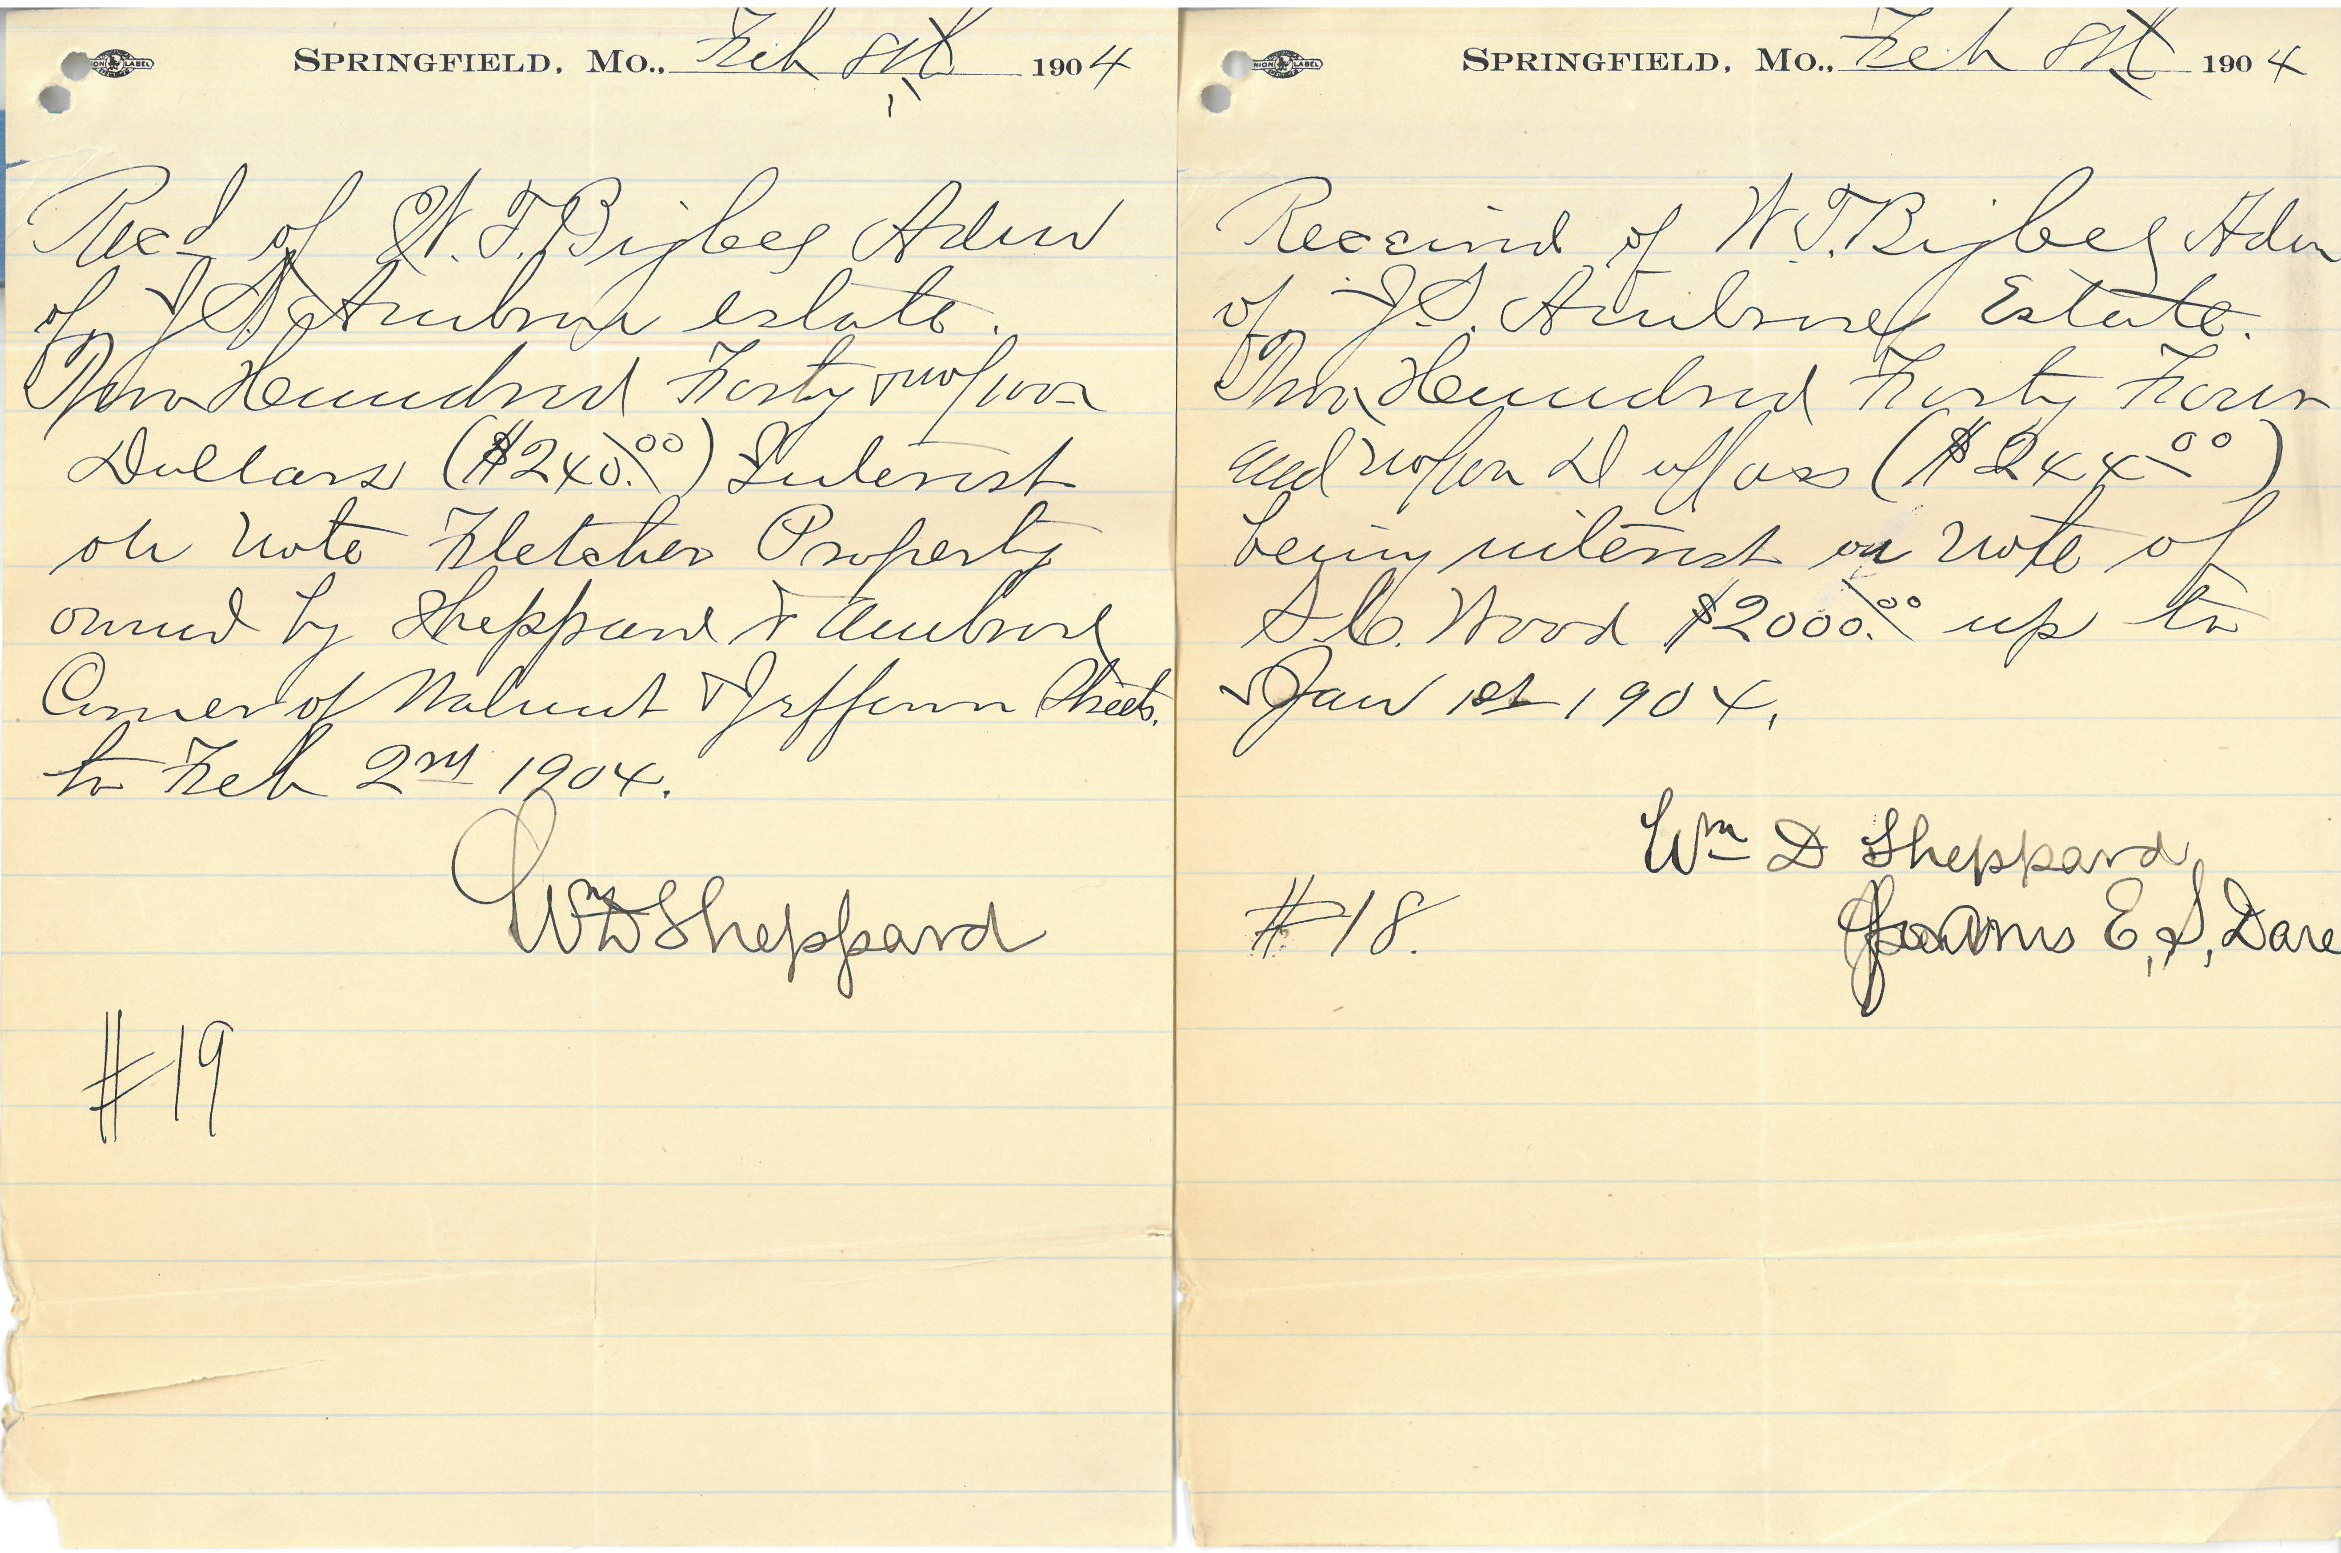 SPRINGFIELD, Mo., Feb 8th 1904
Recd of W. T. Bigbee Adm
of J S. Ambrose estate.
Two Hundred Forty & no/100
Dollars ($240.00) Interest
on note Fletcher Property
owned by Sheppard & Ambrose
Corner of Walnut & Jefferson Streets.
to Feb 2nd 1904.
Wm D Sheppard
#19
SPRINGFIELD, Mo., Feb 8th 1904
Received of W. T. Bigbee Adm
of J.S. Ambrose Estate.
Two Hundred Forty Four
and no/100 Dollars ($244.00)
being interest on note of
S.C. Wood $2000.00 up to
Jan 1st 1904.
Wm D Sheppard
For Mrs E, S, Dare
#18.